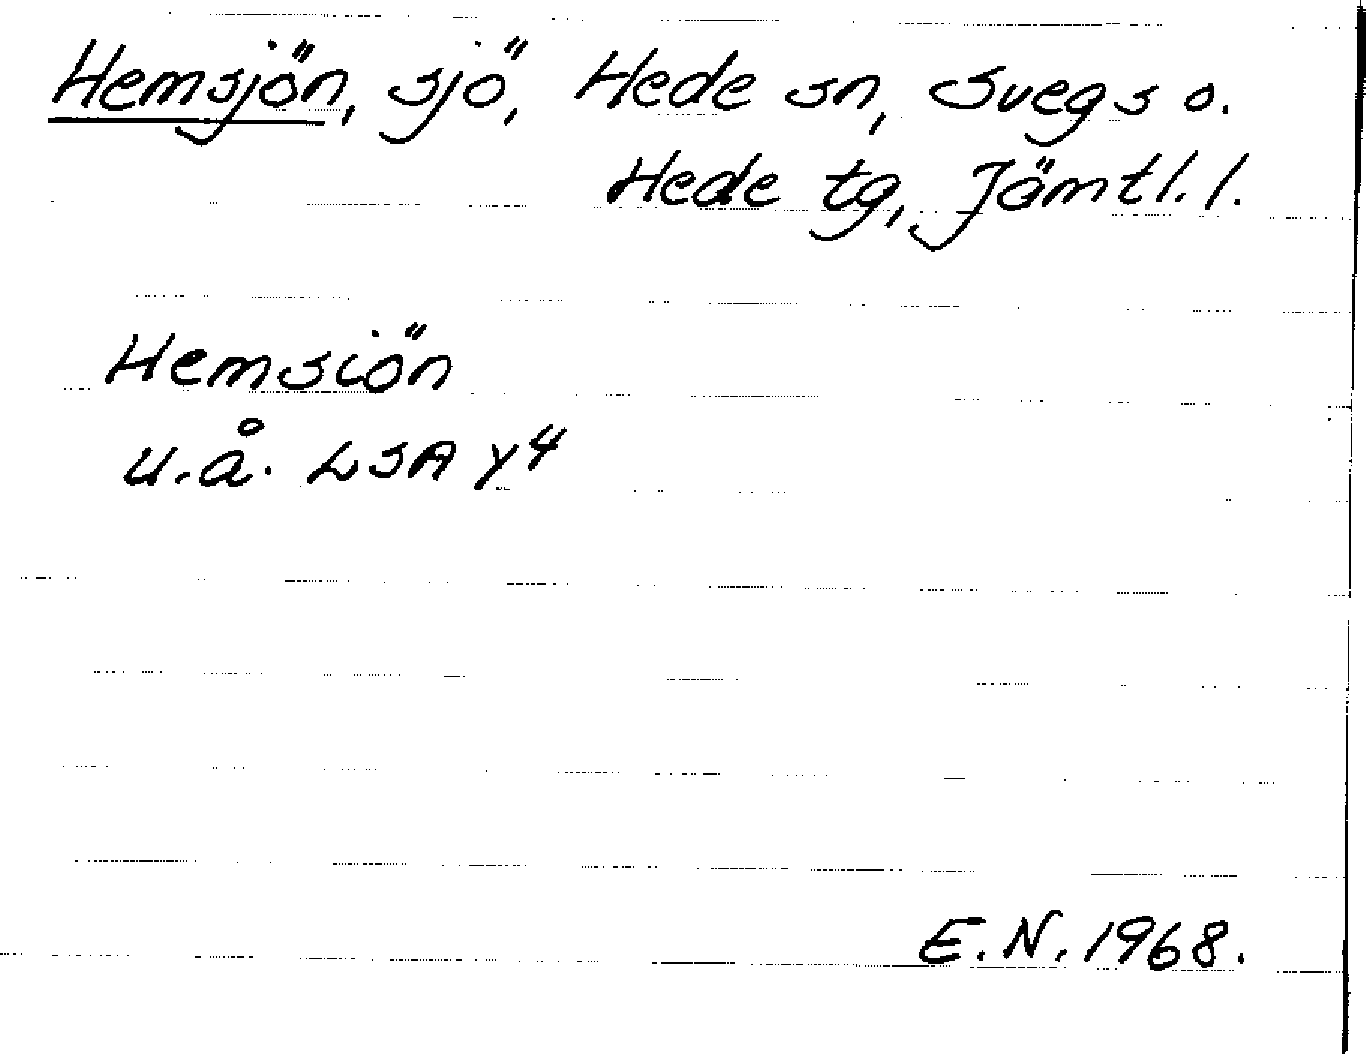 Hemsjön, sjö, Hede sn, Svegs o.
Hede tg, Jämtl. l.
Hemsiön
u.å. LSA Y4
E.N. 1968.